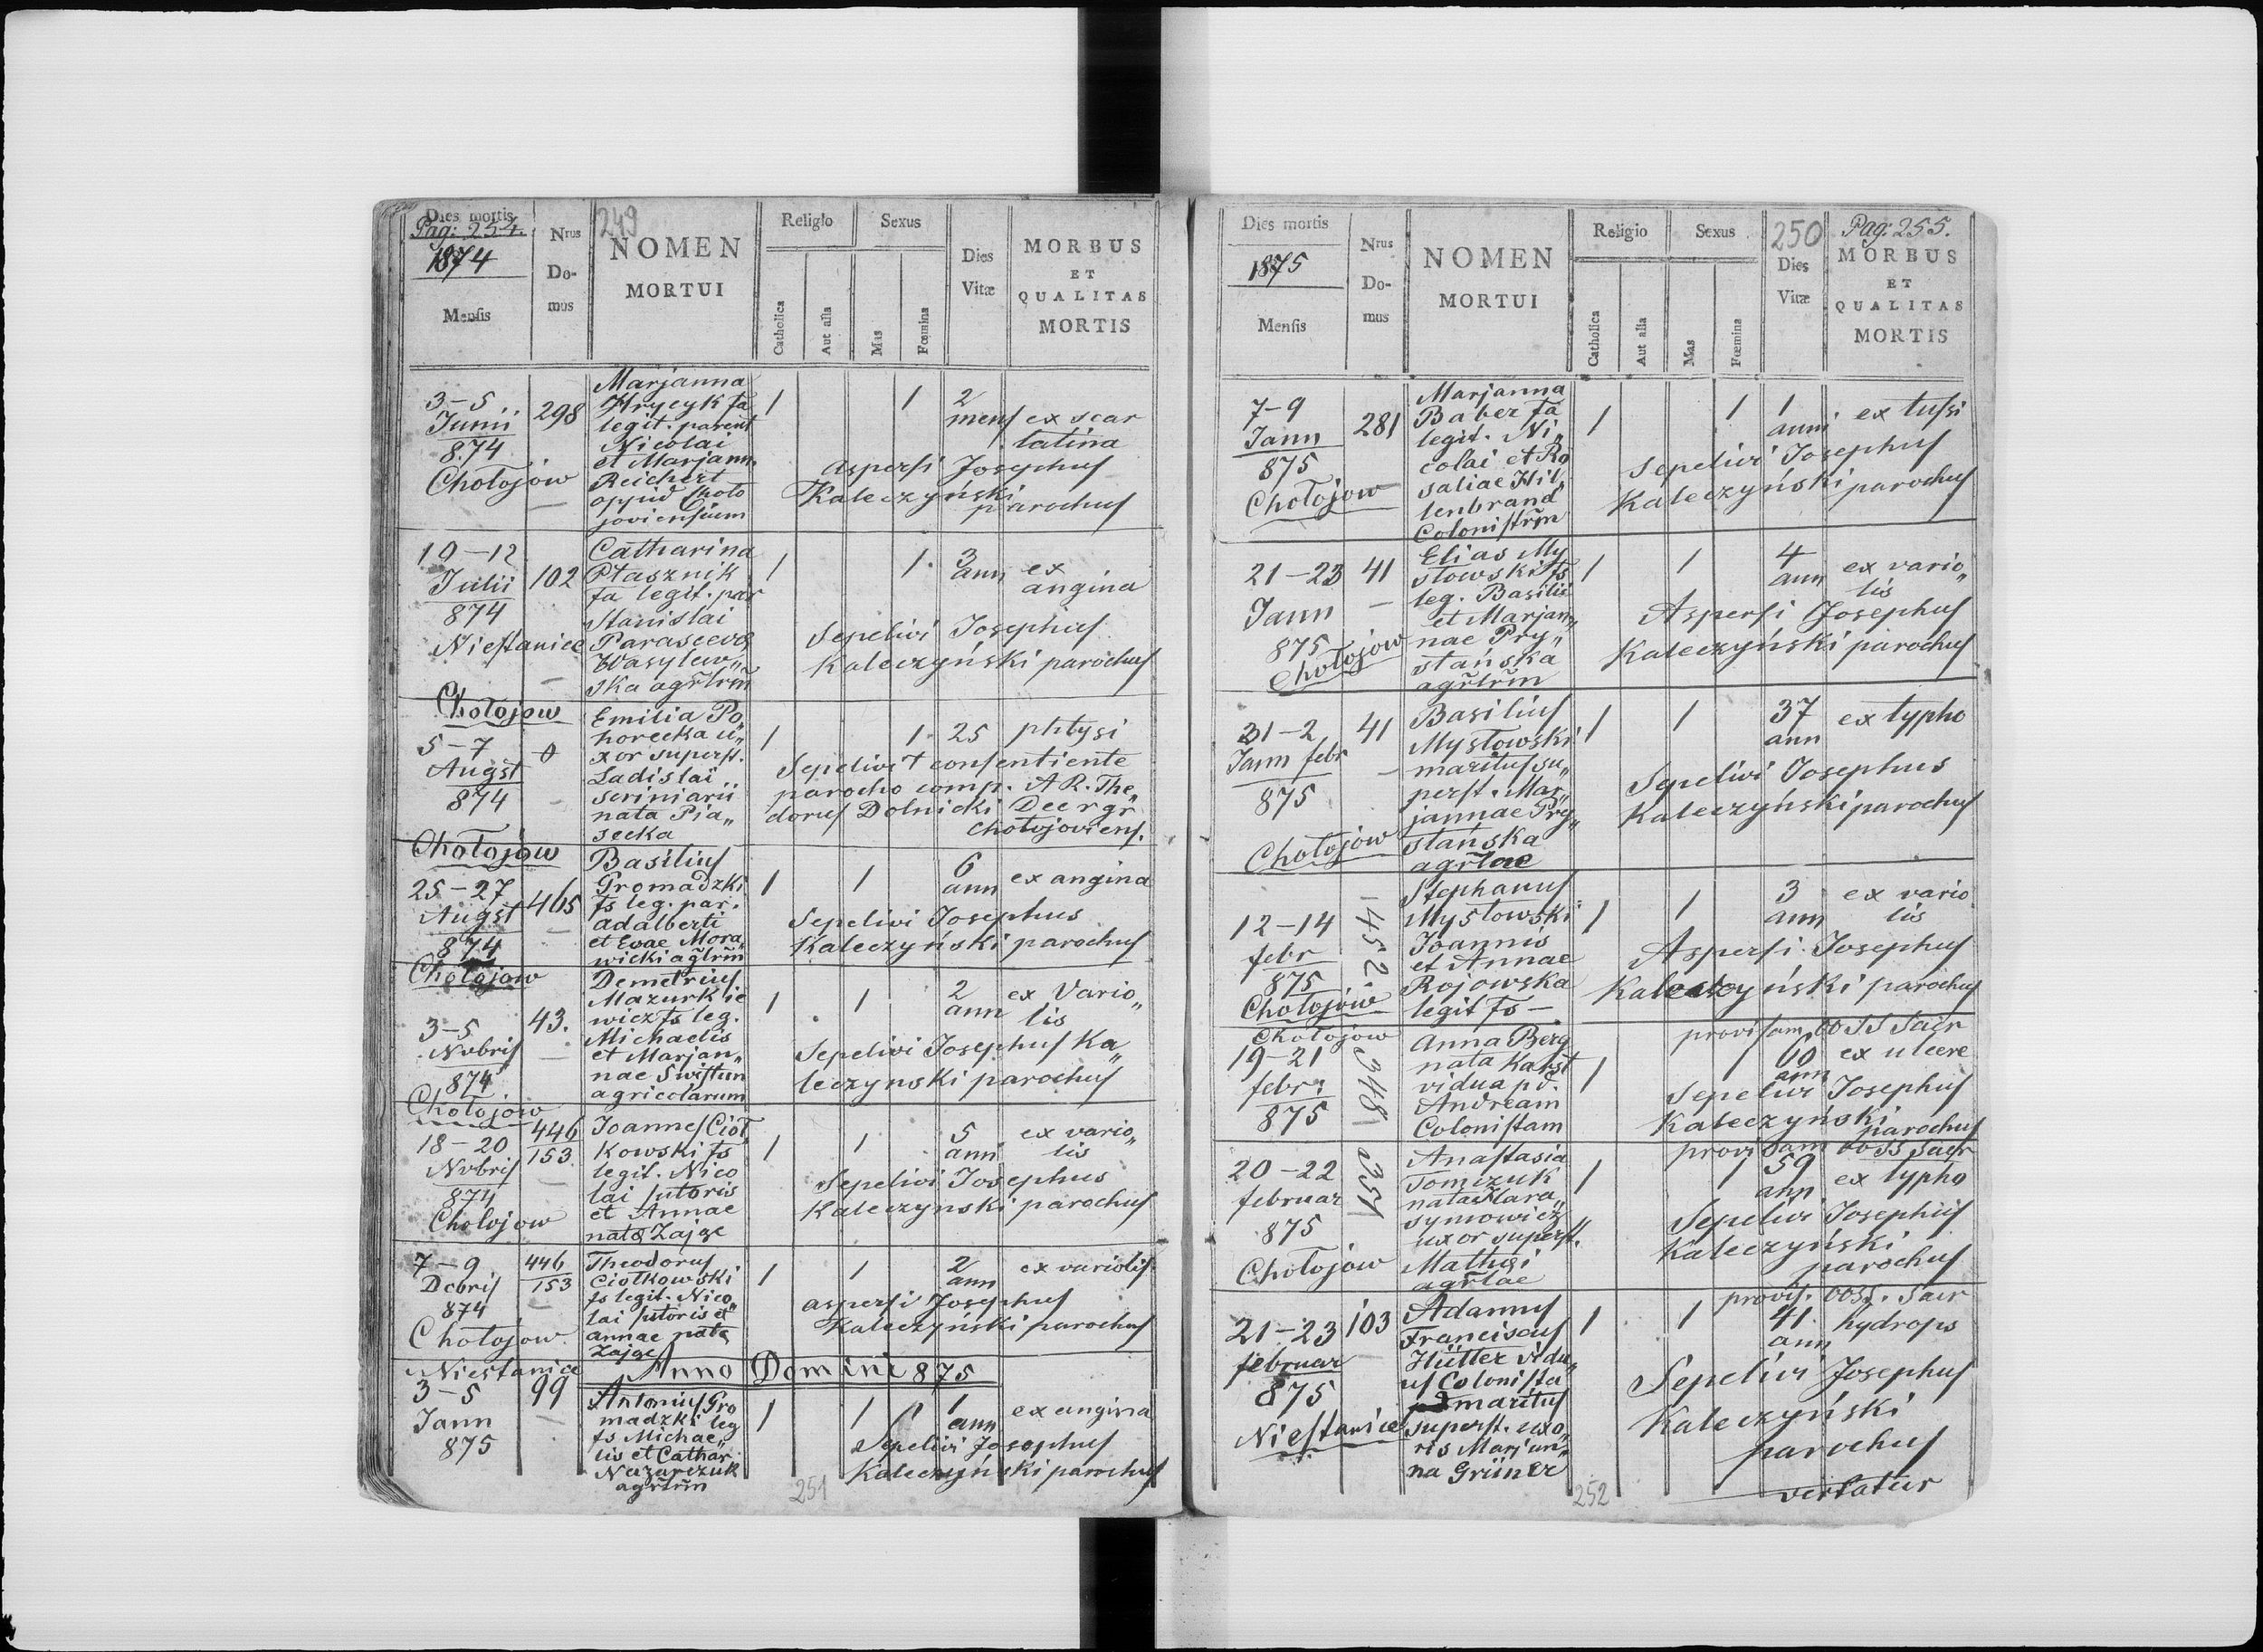 Dies mortis
Pag: 254.
1874
Mensis
Nrus
Do-
mus
249
NOMEN
MORTUI
Religio
Catholica
Aut alia
Sexus
Mas
Fœmina
Dies
Vitæ
MORBUS
ET
QUALITAS
MORTIS
3-5
Junii
874
Chołojow
298
Marjanna
Hrycyk fa
legit. parent
Nicolai
et Marjann.
Reichert
oppid Choło
joviensium
1
1
2
mens
ex scar
latina
aspersi Josephus
Kaleczyński
parochus
10-12
Julii
874
Niestanice
102
Catharina
Ptasznik
fa legit. par
Stanislai
Parascevae
Wasylew„
ska agrlrm
1
1.
3
ann
ex
angina
Sepelivi Josephus
Kaleczyński parochus
Chołojow
5-7
Augst
874
0
Emilia Po„
horecka u„
xor superst.
Ladislai
scriniarii
nata Pia„
secka
1
1.
25
phtysi
Sepelivit consentiente
parocho comp. A R. The„
dorus Dolnicki Dec r gr
chołojoviens.
Chołojow
25-27
Augst
874
465
Basilius
Gromadzki
fs leg. par.
adalberti
et Evae Mora„
wicki agrlrm
1
1
6
ann
ex angina
Sepelivi Josephus
Kaleczyński parochus
Chołojow
3-5
Nvbris
874
43.
Demetrius
Mazurkie
wicz fs leg.
Michaelis
et Marjan„
nae Swistun
agricolarum
1
1
2
ann
ex Vario„
lis
Sepelivi Josephus Ka„
leczynski parochus
Chołojow
18-20
Nvbris
874
Cholojow
446
153
Joannes Cioł
kowski fs
legit. Nico
lai sutoris
et Annae
nata Zajge
1
1
5
ann
ex vario„
lis
Sepelivi Josephus
Kaleczynski parochus
7-9
Dcbris
874
Chołojow
446
153
Theodorus
Ciołkowski
fs legit. Nico„
lai sutoris et
annae nata
Zajge
1
1
2
ann
ex variolis
aspersi Josephus
Kaleczyński parochus
Anno Domini 875
Niestanice
3-5
Jann
875
99
Antonius Gro
madzki leg
fs Michae„
lis et Cathar
Nazarczuk
agrlrm
1
1
1
ann
ex angina
Sepelivi Josephus
Kaleczyński parochus
251
Dies mortis
1875
Mensis
Nrus
Do-
mus
NOMEN
MORTUI
Religio
Catholica
Aut alia
Sexus
Mas
Fœmina
250
Dies
Vitæ
Pag: 255.
MORBUS
ET
QUALITAS
MORTIS
7-9
Jann
875
Chołojow
281
Marjanna
Baber fa
legit. Ni„
colai et Ro
saliae Hil„
lenbrand
Colonistrm
1
1
1
anni
ex tussi
Sepelivi Josephus
Kaleczyński parochus
21-23
Jann
875
Chołojow
41
Elias My
słowski fs
leg. Basilii
et Marjan„
nae Pry„
stańska
agrlrm
1
1
4
ann
ex vario„
lis
Aspersi Josephus
Kaleczyński parochus
31-2
Jann febr
875
Chołojow
41
Basilius
Mysłowski
maritus su„
perst. Mar„
jannae Pry„
stańska
agrlae
1
1
37
ann
ex typho
Sepelivi Josephus
Kaleczyński parochus
12-14
febr
875
Chołojow
452.
Stephanus
Mysłowski
Joannis
et Annae
Rojowska
legit fs
1
1
3
ann
ex vario
lis
Aspersi Josephus
Kaleczyński parochus
Chołojow
19-21
febr:
875
348
Anna Berg
nata Karst
vidua pd.
Andream
Colonistam
1
1
provisam ooSS Sacr
60
ann
ex ulcere
Sepelivi Josephus
Kaleczyński
parochus
20-22
februar
875
Chołojow
351
Anastasia
Tomczuk
nata Hara„
symowicz
uxor superst.
Mathei
agrlae
1
1
provisam ooSS Sacr
59
ann
ex typho
Sepelivi Josephus
Kaleczyński
parochus
21-23
februar
875
Niestanice
103
Adamus
Franciscus
Hütter vidu„
us Colonista
maritus
superst. uxo„
ris Marjan„
na Grüner
1
1
provis. ooSS. Sacr
41
ann
hydrops
Sepelivi Josephus
Kaleczyński
parochus
vertatur
252